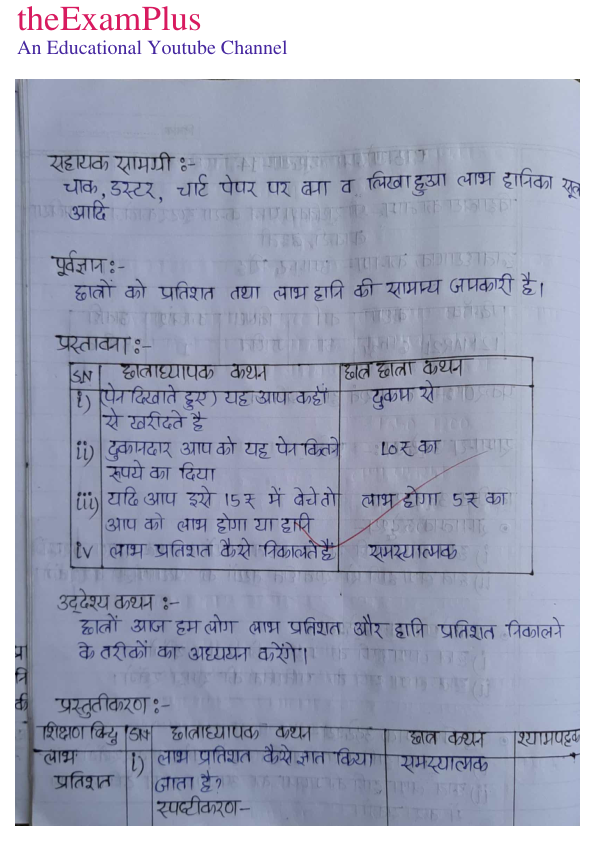 theExamPlus
An Educational Youtube Channel
सहायक सामग्री :-
चाक, डस्टर, चार्ट पेपर पर बना व लिखा हुआ लाभ हानि का सूत्र
आदि
पूर्वज्ञान :-
छात्रों को प्रतिशत तथा लाभ हानि की सामान्य जानकारी है।
प्रस्तावना :-
S.N छात्राध्यापक कथन छात्र छात्रा कथन
i) (पेन दिखाते हुए) यह आप कहाँ दुकान से
से खरीदते है
ii) दुकानदार आप को यह पेन कितने 10₹ का
रूपये का दिया
iii) यदि आप इसे 15₹ में बेचे तो लाभ होगा 5₹ का
आप को लाभ होगा या हानि
iv लाभ प्रतिशत कैसे निकालते हैं समस्यात्मक
उद्देश्य कथन :-
छात्रों आज हम लोग लाभ प्रतिशत और हानि प्रतिशत निकालने
के तरीकों का अध्ययन करेंगे।
प्रस्तुतीकरण :-
शिक्षण बिन्दु S.N छात्राध्यापक कथन छात्र कथन श्यामपट्ट
लाभ i) लाभ प्रतिशत कैसे ज्ञात किया समस्यात्मक
प्रतिशत जाता है?
स्पष्टीकरण-